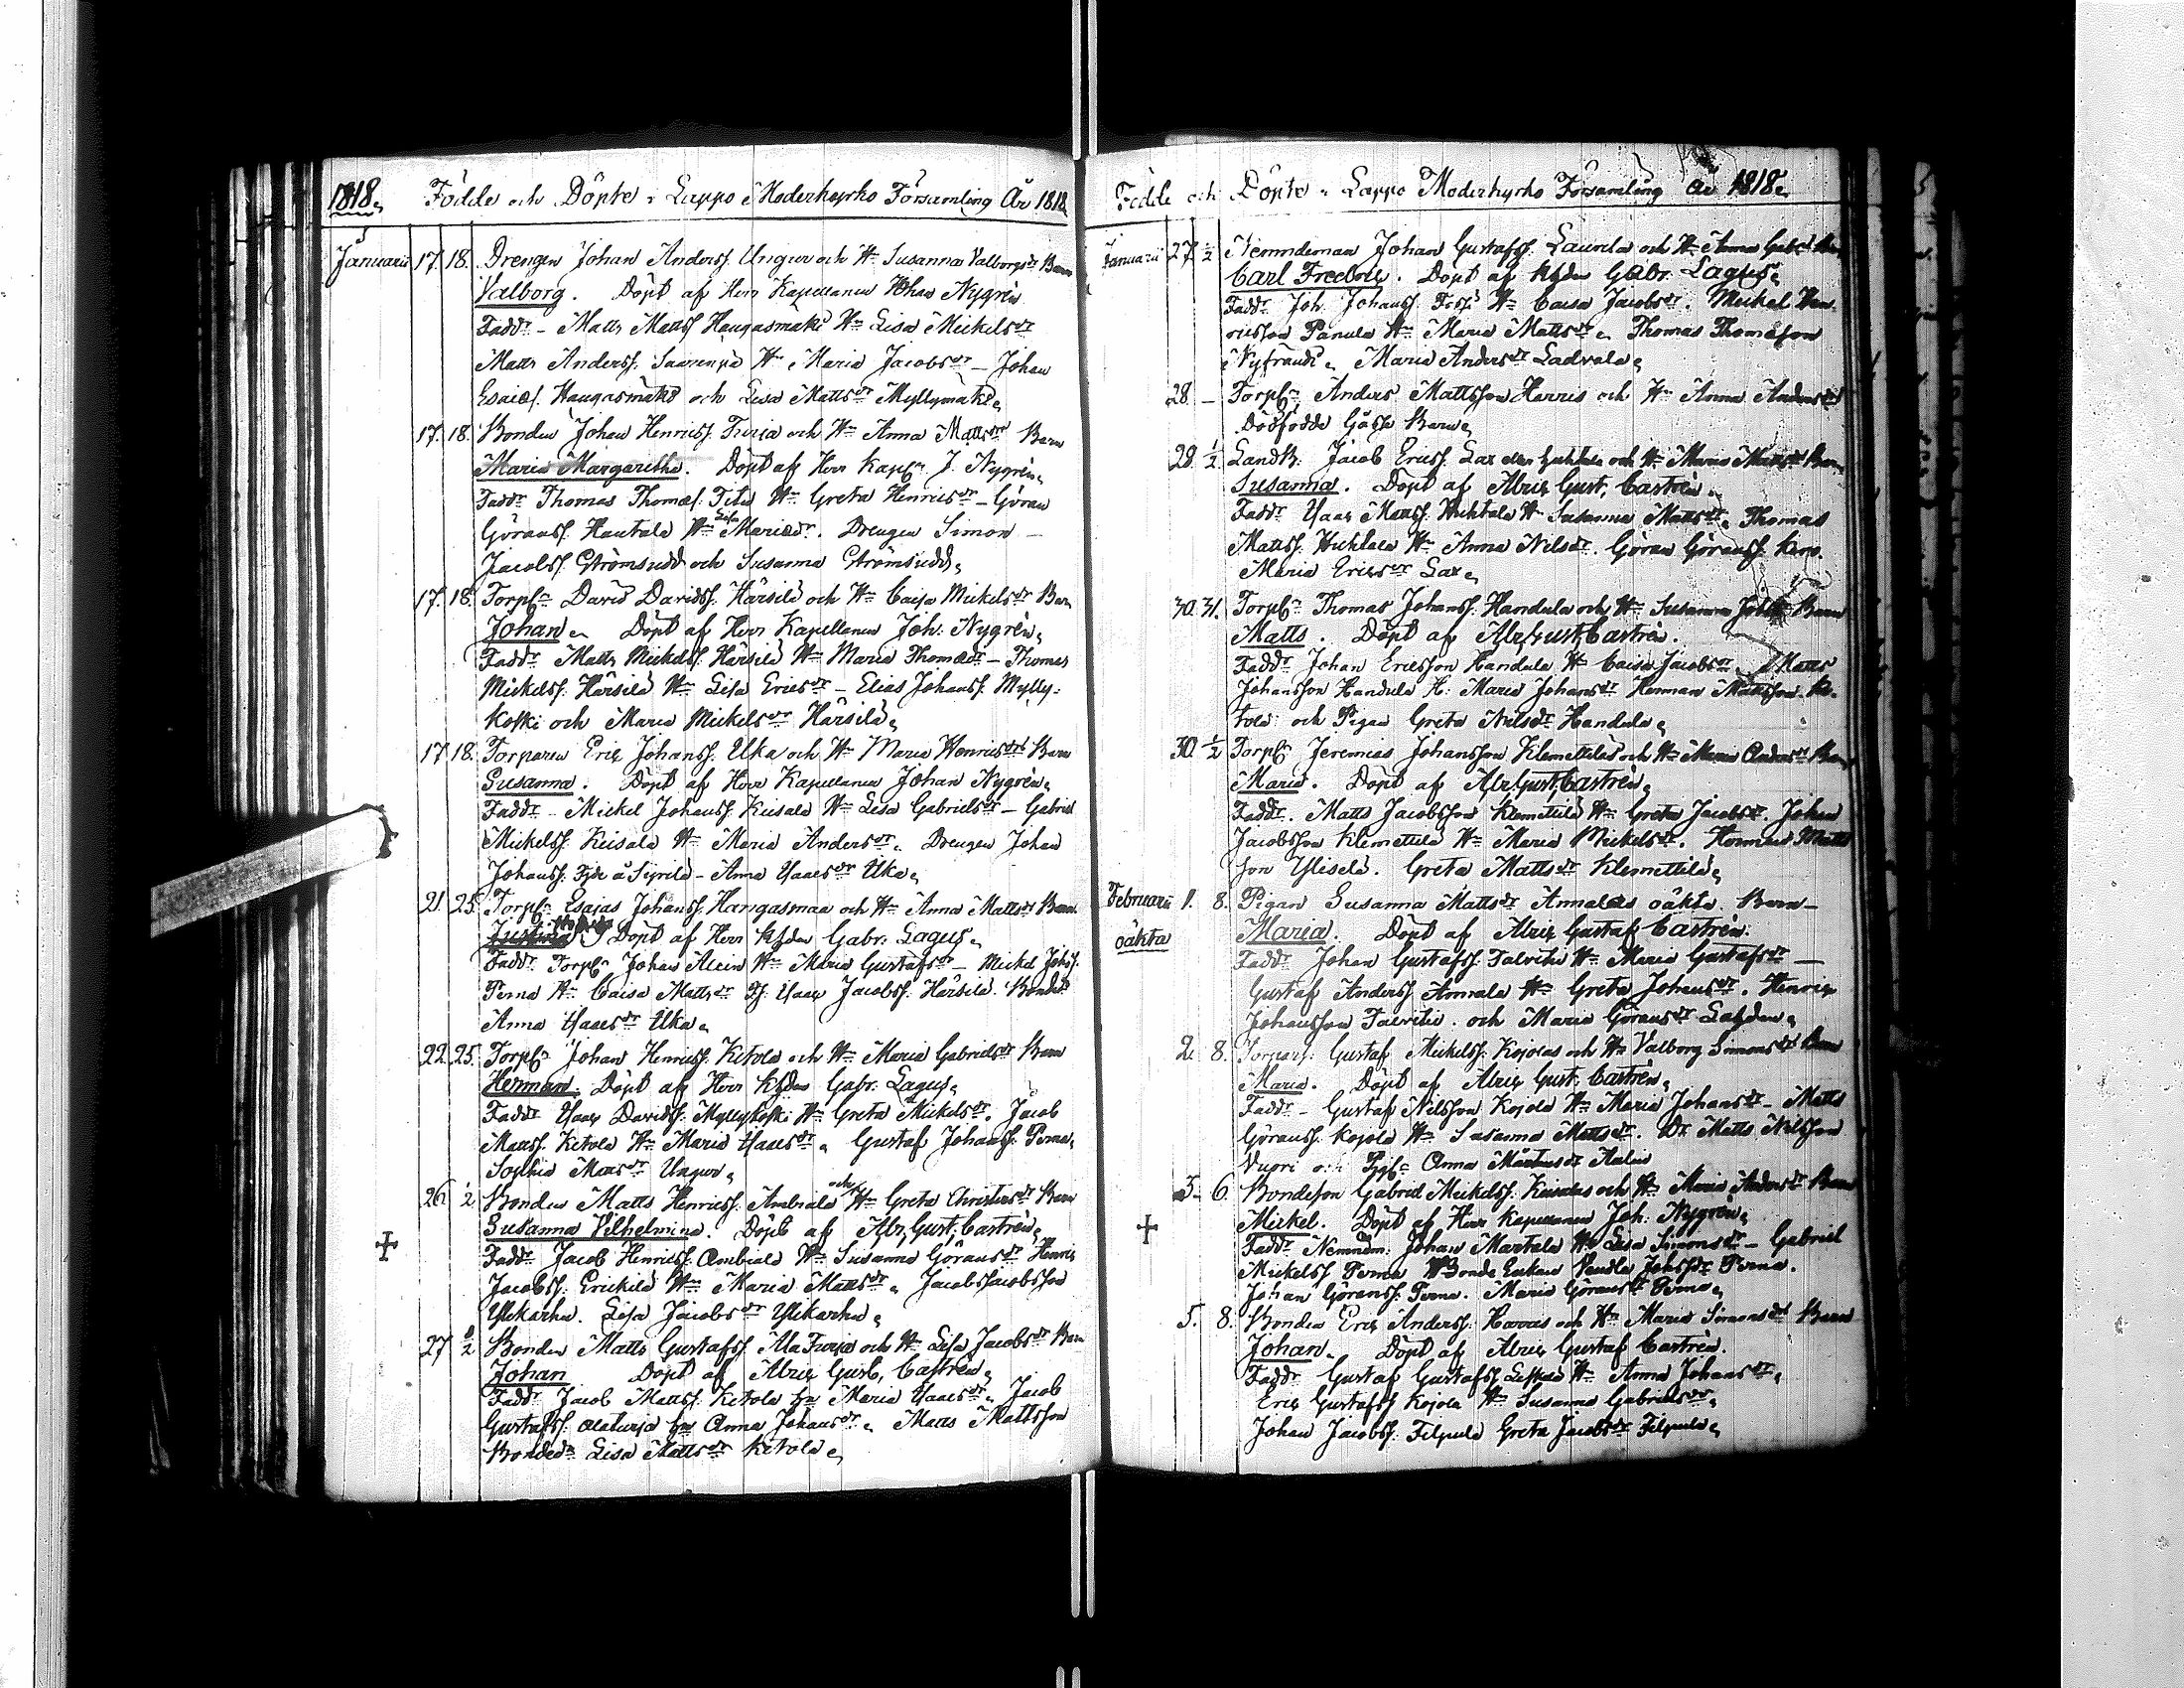 1818. Födde och Döpte i Lappo Moderkyrko Församling År 1818
Januarii 17. 18. Drengen Johan Anderss. Ungur och H. Susanna Valborgsdr Barn
Valborg. Döpt af Herr Kapellanen Johan Nygrén
Fadd: – Matts Mattss Haugasmäki H: Lisa Mickelsdr
Matts Anderss. Saarenpä H: Maria Jacobsdr – Johan
Esaiæs. Haugasmäki och Lisa Mattsdr Myllymäki
17. 18. Bonden Johan Henricss. Turja och H: Anna Mattsdr Barn
Maria Margaretha. Döpt af Herr Kapln J. Nygrén
Faddr Thomas Thomæs. H: Greta Henricsdr – Göran
Göranss. Hautala H: Lisa Mariædr. Drengen Simon –
Jacobss. Strömsudd och Susanna Strömsudd
17. 18. Torpn David Davidss. Härsilä och H: Caisa Mickelsdr Barn
Johan. Döpt af Herr Kapellanen Joh: Nygrén
Faddr Matts Mickelss. Härsilä H: Maria Thomædr – Thomas
Mickelss. Härsilä H: Lisa Ericsdr – Elias Johanss. Mylly-
koski och Maria Mickelsdr Härsilä
17 18. Torparen Eric Johanss. Uka och H: Maria Henricsdr Barn
Susanna. Döpt af Herr Kapellanen Johan Nygrén
Faddr – Mickel Johanss. Keisala H: Lisa Gabrielsdr – Gabriel
Mickelss. Keisala H: Maria Andersdr. Drengen Johan
Johanss. å Syrilä – Anna Isaacsdr Uka
21. 25. Torpn Esaias Johanss. Hangasmaa och H: Anna Mattsdr Barn
Justina Döpt af Herr Gabr. Lagus
Faddr Torpn Johan H: Maria Gustafsdr – Mickel Johss.
Perna H: Caisa Mattsdr Isaac Jacobss. Härsilä. Bondedr
Anna Isaacsdr Uka
22. 25. Torpn Johan Henricss. Ketola och H: Maria Gabrielsdr Barn
Herman. Döpt af Herr Gabr. Lagus
Faddr Isaac Davidss. Myllykoski H: Greta Mickelsdr. Jacob
Mattss. Ketola H: Maria Isaacsdr. Gustaf Johanss. Perna
Sophia Matsdr Ungur
26 1/2 Bonden Matts Henricss. Ambrala och H: Greta Christersdr Barn
Susanna Vilhelmina. Döpt af Abr: Gust: Castrén
Faddr Jacob Henricss. Ambrala H: Susanna Göransdr Henric
Jacobss. Erickilä H: Maria Mattsdr. Jacob Jacobsson
Ylikarhu. Lisa Jacobsdr Ylikarhu
27 1/2 Bonden Matts Gustafss. Ala Turja och H: Lisa Jacobsdr Barn
Johan Döpt af Abrig Gust, Castrén
Faddr Jacob Mattss. Ketola Maria Isaacsdr. Jacob
Gustafss. Alaturja Anna Johansdr. Matts Mattsson
Bondedr Lisa Mattsdr Ketola
Födde och Döpte i Lappo Moderkyrko Församling År 1818
Januarii 27. 1/2 Nemndeman Johan Gustafss. Laurila och H: Anna Gabrsdr Barn
Carl Fredric. Döpt af Gabr. Lagus
Faddr Joh. Johanss. H: Caisa Jacobsdr. Mickel Hen-
ricsson Panula H: Maria Mattsdr. Thomas Thomæson
Maria Andersdr Ladvala
28. – Torpn Anders Mattsson Harris och H: Anna Andersdr
Dödfödde Gåsse Barn
28. 1/2 Jacob Ericss. Lax och H: Maria Mattsdr Barn
Susanna. Döpt af Abrig Gust, Castrén
Faddr Isaac Mattss. Huhtala H: Susanna Mattsdr. Thomas
Mattss. Huhtala H: Anna Nilsdr. Göran Göranss.
Maria Ericsdr Lax
30. 31. Torpn Thomas Johanss. Handula och H: Susanna Barn
Matts. Döpt af Abr, Gust, Castrén.
Faddr Johan Ericsson Handula H: Caisa Jacobsdr. Matts
Johansson Handula H: Maria Johansdr Herman Mattsson Ke-
tola och Pigan Greta Nilsdr Handula
30. 1/2 Torpn Jeremias Johansson Klemettilä och H: Maria Andersdr Barn
Maria. Döpt af Abr. Gust, Castrén
Faddr. Matts Jacobsson Klemettilä H: Greta Jacobsdr. Johan
Jacobsson Klemettilä H: Maria Mickelsdr. Herman Matts
son Greta Mattsdr Klemettilä
Februarii 1. 8. Pigan Susanna Mattsdr Annalas oäkta Barn –
oäkta Maria. Döpt af Abrig Gustaf Castrén.
Faddr Johan Gustafss. Talvitie H: Maria Gustafsdr –
Gustaf Anderss Annala H: Greta Johansdr. Henric
Johansson Talvitie och Maria Göransdr
2. 8. Torpars. Gustaf Mickelss. Kojolas och H: Valborg Simonsdr Barn
Maria. Döpt af Abrig Gust, Castrén
Faddr – Gustaf Nilsson Kojola H: Maria Johansdr – Matts
Göranss. Kojola H: Susanna Mattsdr. Dr. Matts Nilsson
Vuori och Anna
5. 6. Bondeson Gabriel Mickelss. Keisalas och H: Maria Andersdr Barn
Mickel. Döpt af Herr Kapellanen Joh: Nygrén
Faddr Nemndm: Johan Martala H: Lisa Simonsdr – Gabriel
Mickelss Perna Bonde Enkan Johsdr Perna.
Johan Göranss. Perna. Maria Göransdr Perna
5. 8. Bonden Eric Anderss. Harris och H: Maria Simonsdr Barn
Johan. Döpt af Abrig Gustaf Castrén.
Faddr Gustaf Gustafss H: Anna Johansdr
Eric Gustafss Kojola H: Susanna Gabrielsdr
Johan Jacobss. Filpula Greta Jacobsdr Filpula